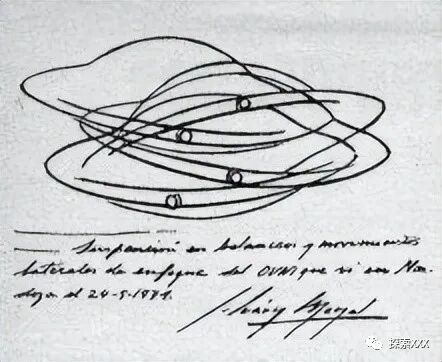 Suspensión en balanceos y movimientos
laterales de enfoque del OVNI que vi en Men-
doza el 24-5-1971.
探索XXX